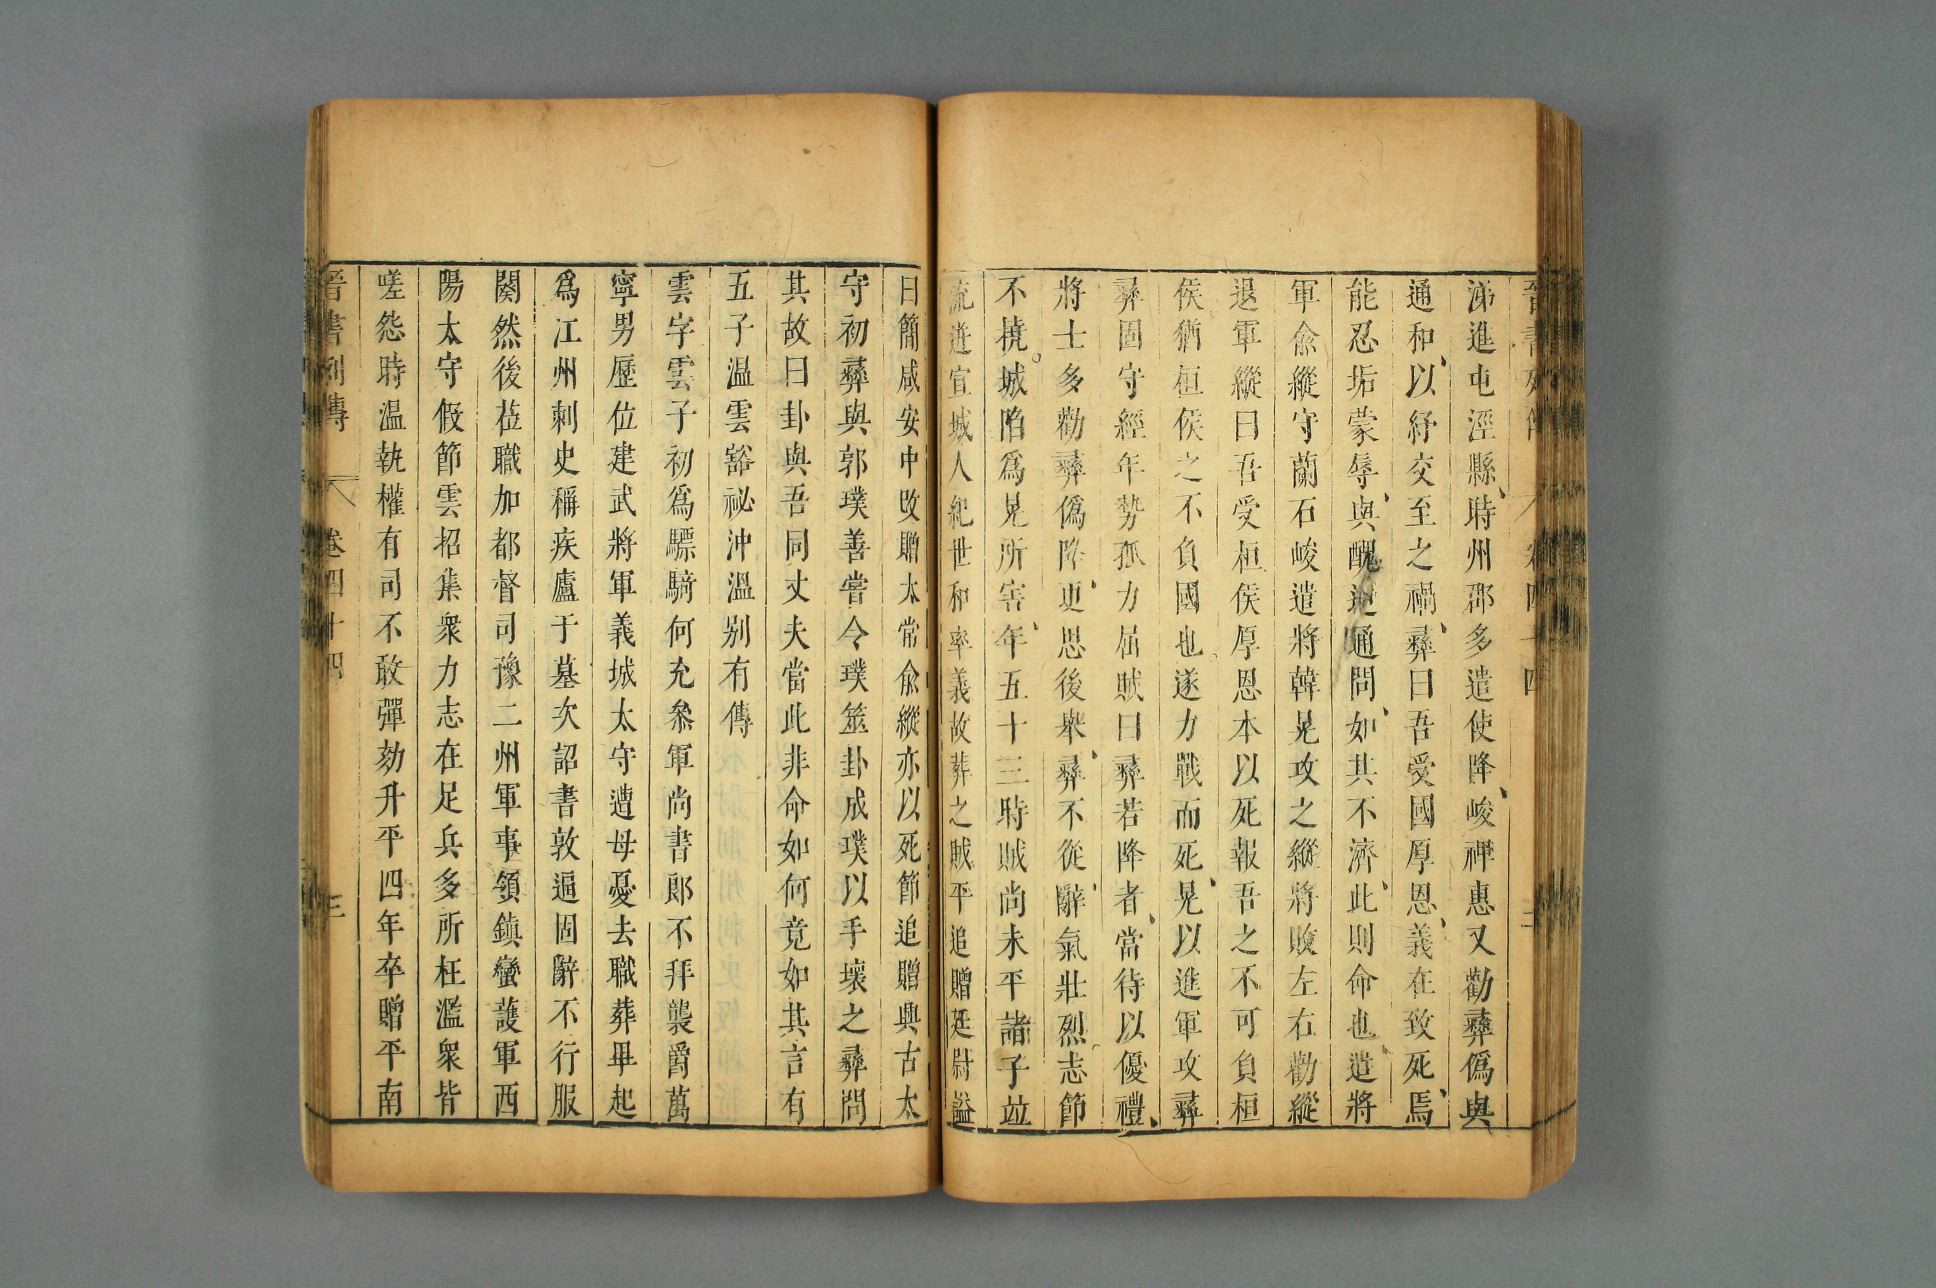 涕進屯涇縣時州郡多遣使降峻裨惠又勸彝僞與
通和以紓交至之禍彝曰吾受國厚恩義在致死焉
能忍垢蒙辱與醜逆通問如其不濟此則命也遣將
軍兪縱守蘭石峻遣將韓晃攻之縱將敗左右勸縱
退軍縱曰吾受桓侯厚恩本以死報吾之不可負桓
侯猶桓侯之不負國也遂力戰而死晃以進軍攻彝
彝固守經年勢孤力屈賊曰彝若降者當待以優禮
將士多勸彝僞降更思後舉彝不從辭氣壯烈志節
不撓城陷爲晃所害年五十三時賊尚未平諸子竝
流迸宣城人紀世和率義故葬之賊平追贈廷尉謚
曰簡咸安中改贈太常兪縱亦以死節追贈興古太
守初彝與郭璞善嘗令璞筮卦成璞以手壞之彝問
其故曰卦與吾同丈夫當此非命如何竟如其言有
五子温雲豁祕沖溫别有傳
雲字雲子初爲驃騎何充叅軍尚書郎不拜襲爵萬
寧男歷位建武將軍義城太守遭母憂去職葬畢起
爲江州刺史稱疾廬于墓次詔書敦逼固辭不行服
闋然後莅職加都督司豫二州軍事領鎮蠻護軍西
陽太守假節雲招集衆力志在足兵多所枉濫衆皆
嗟怨時温執權有司不敢彈劾升平四年卒贈平南
晉書列傳 卷四十四 三